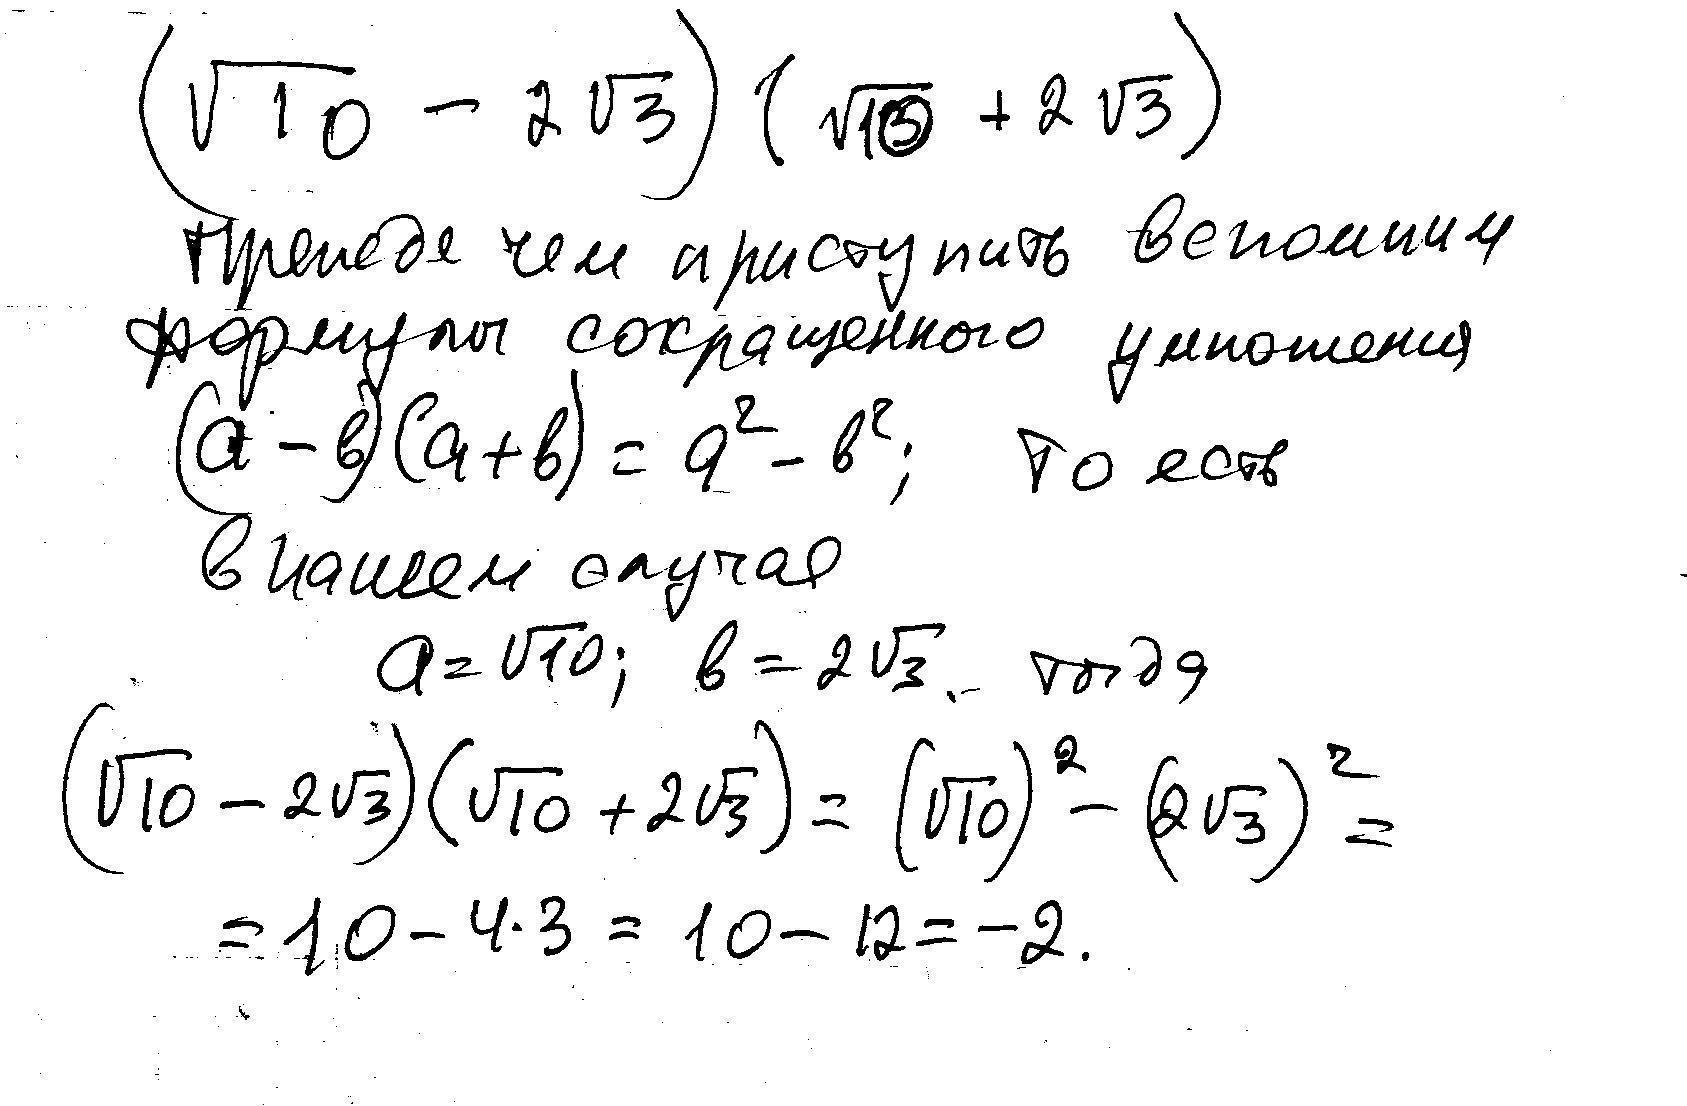 (√10 - 2√3)(√10 + 2√3)
Прежде чем приступить вспомним
формулы сокращенного умножения
(a - в)(a + в) = a² - в²; то есть
в нашем случае
a = √10; в = 2√3. тогда
(√10 - 2√3)(√10 + 2√3) = (√10)² - (2√3)² =
= 10 - 4·3 = 10 - 12 = -2.